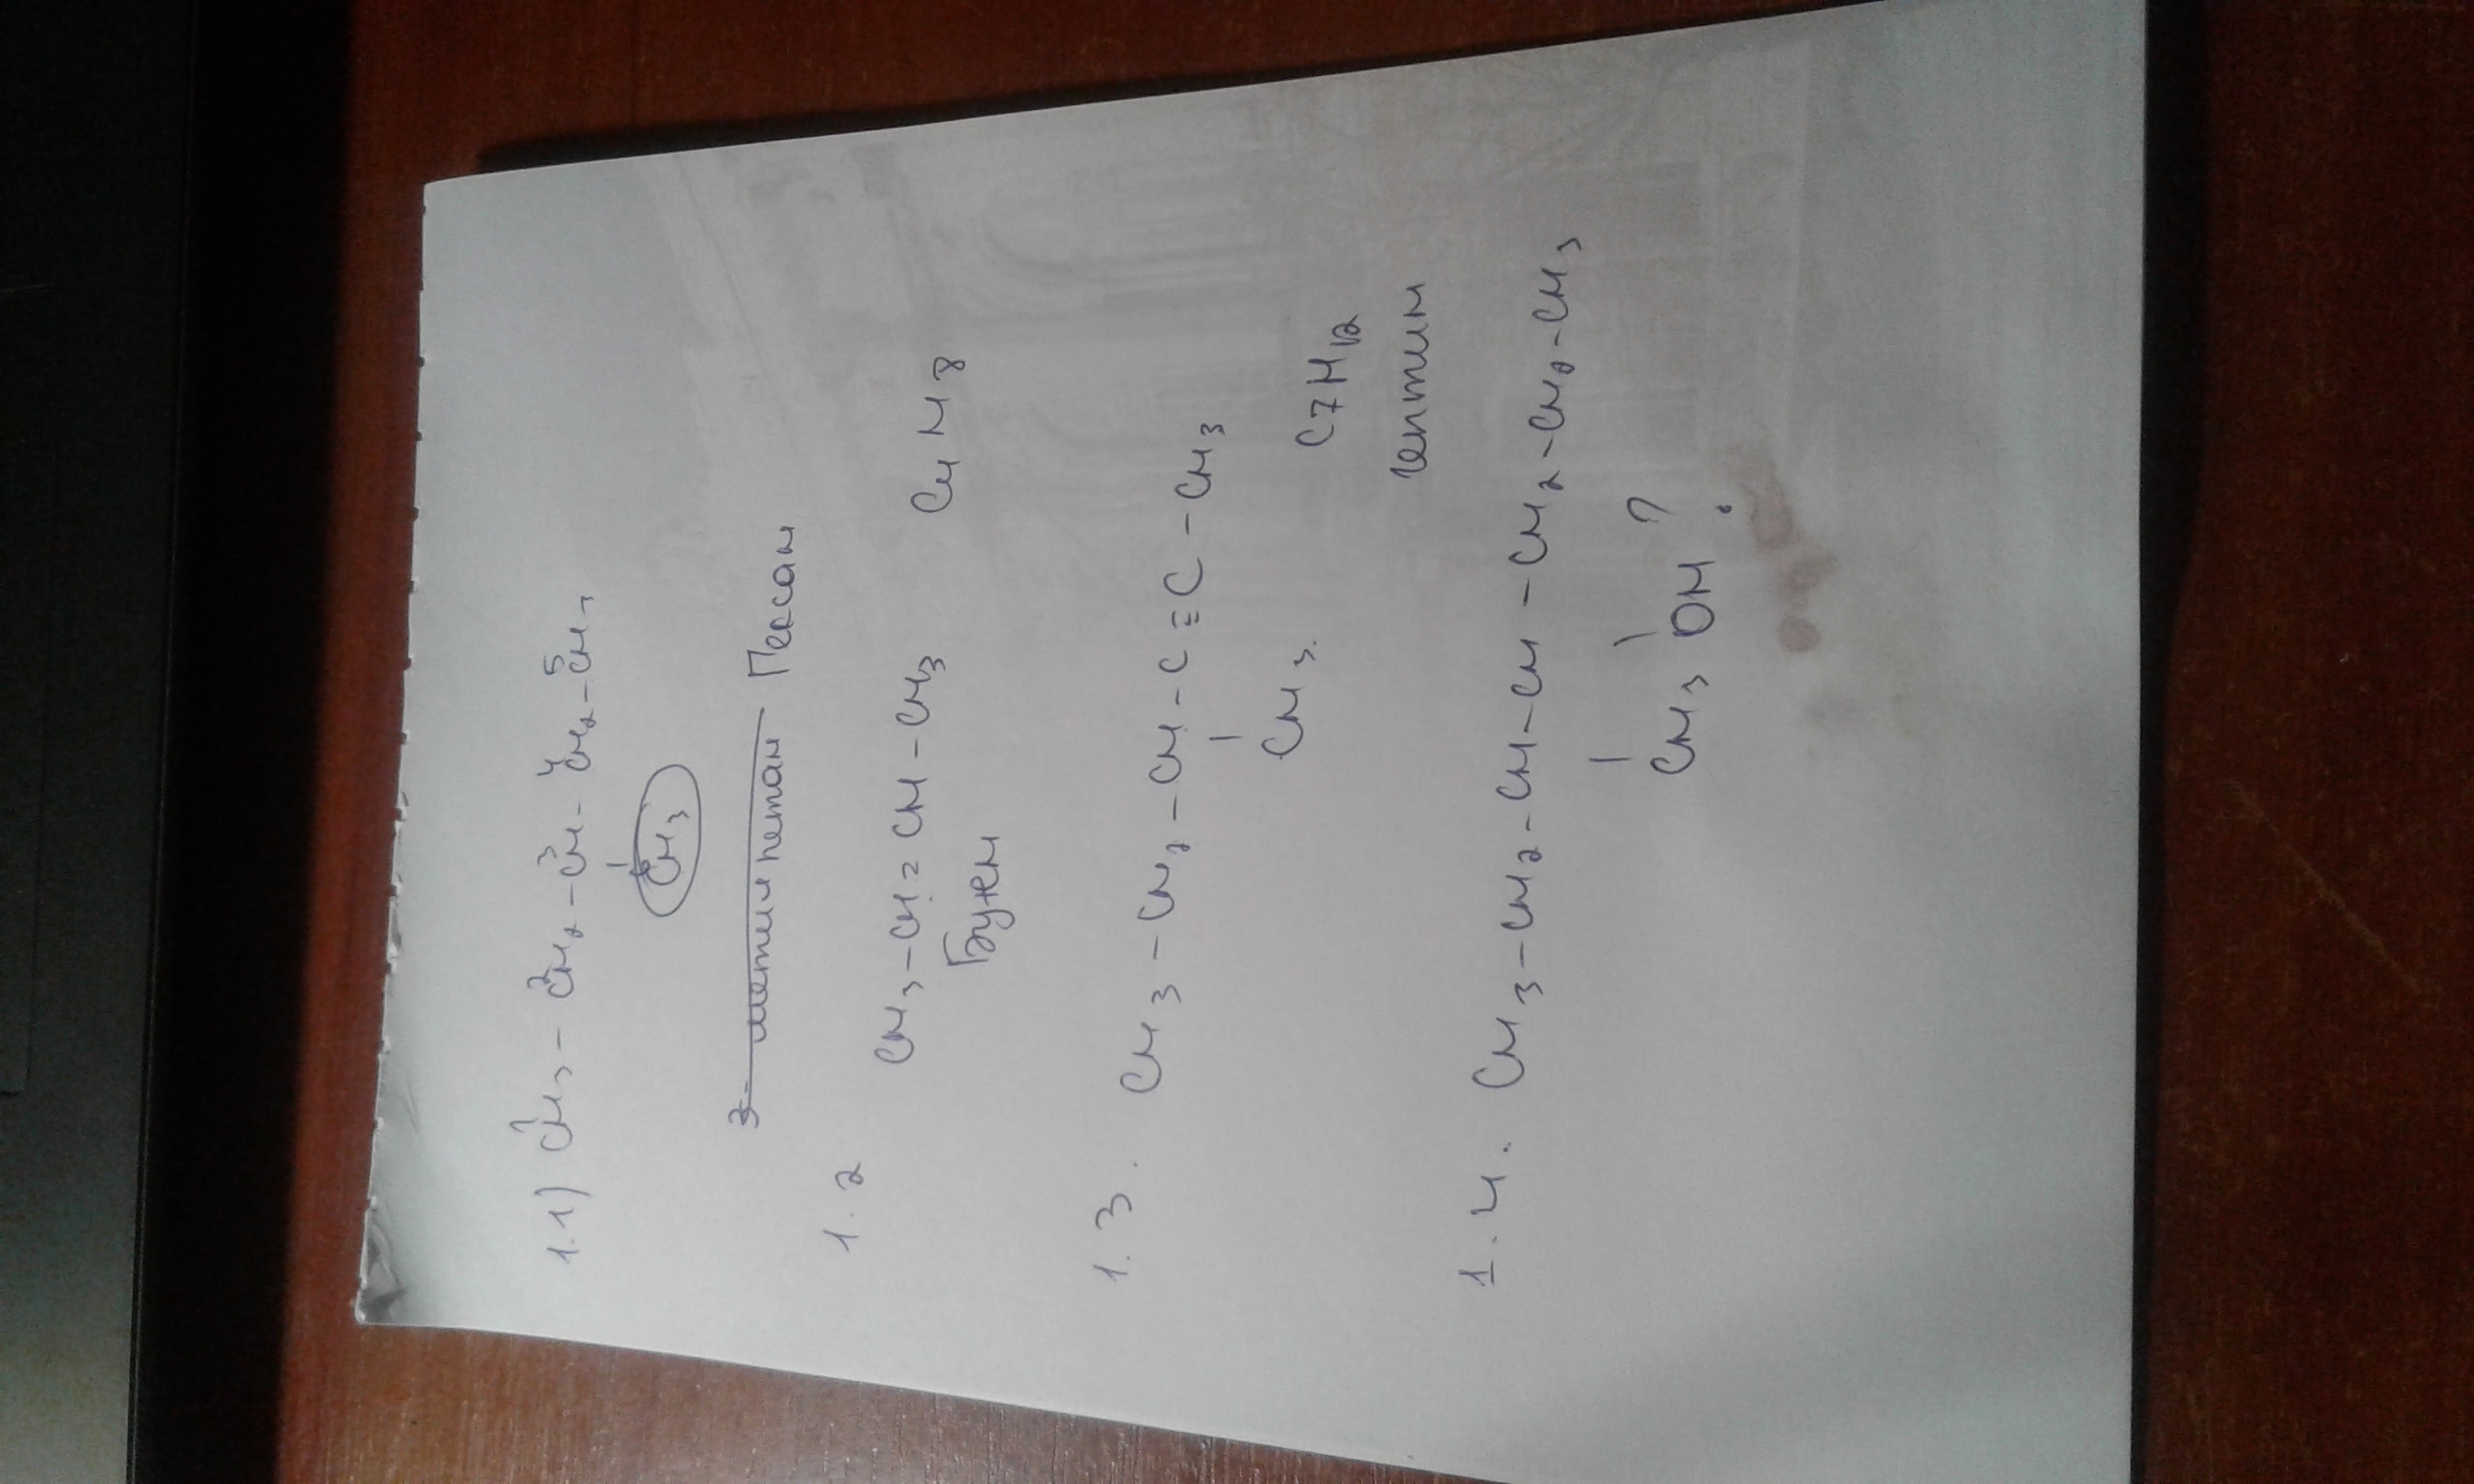 1.1) CH3 - CH2 - CH - CH2 - CH3
1 2 3 4 5
CH3
3 - метил петан Гексан
1.2
CH3 - CH = CH - CH3 C4H8
Бутен
1.3. CH3 - CH2 - CH - C ≡ C - CH3
CH3
C7H12
гептин
1.4. CH3 - CH2 - CH - CH - CH2 - CH2 - CH3
CH3 OH ?